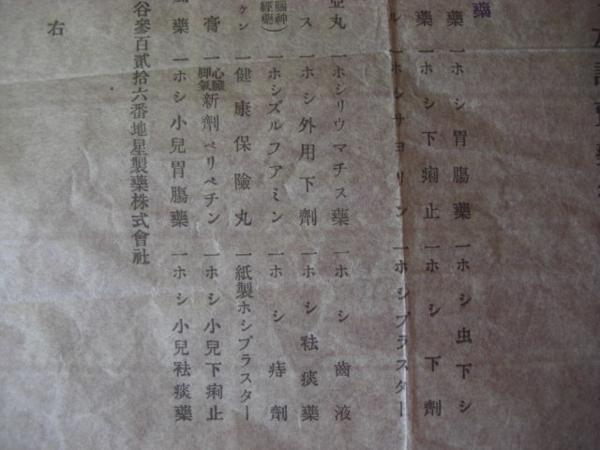 藥
藥 一ホシ胃腸藥 一ホシ虫下シ
藥 一ホシ下痢止 一ホシ下劑
ル 一ホシサヨリン 一ホシプラスター
亞丸 一ホシリウマチス藥 一ホシ齒液
ス 一ホシ外用下劑 一ホシ袪痰藥
腦神經藥) 一ホシズルフアミン 一ホシ痔劑
ケン 一健康保險丸 一紙製ホシプラスター
膏 一心臟脚氣新劑ベリベチン 一ホシ小兒下痢止
藥 一ホシ小兒胃腸藥 一ホシ小兒袪痰藥
谷參百貳拾六番地星製藥株式會社
右